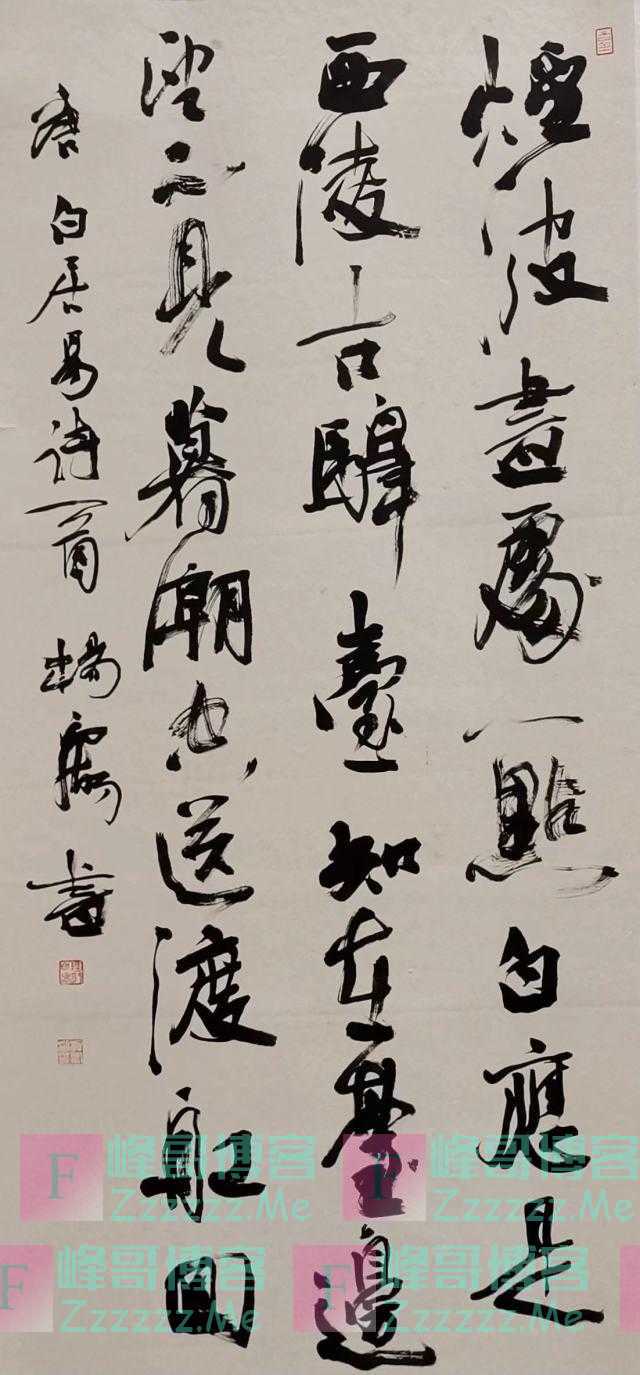 煙波盡處一點白應是
西陵古驛臺知在臺邊
望不見暮潮空送渡舡回
唐 白居易詩一首 楊 書
F 峰哥博客 F 峰哥博客
Zzzzzz.Me Zzzzzz.Me
F 峰哥博客 F 峰哥博客
Zzzzzz.Me Zzzzzz.Me